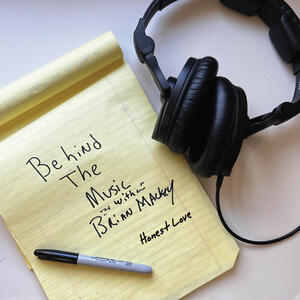 Behind
The
Music
~ with ~
Brian Mackey
Honest Love